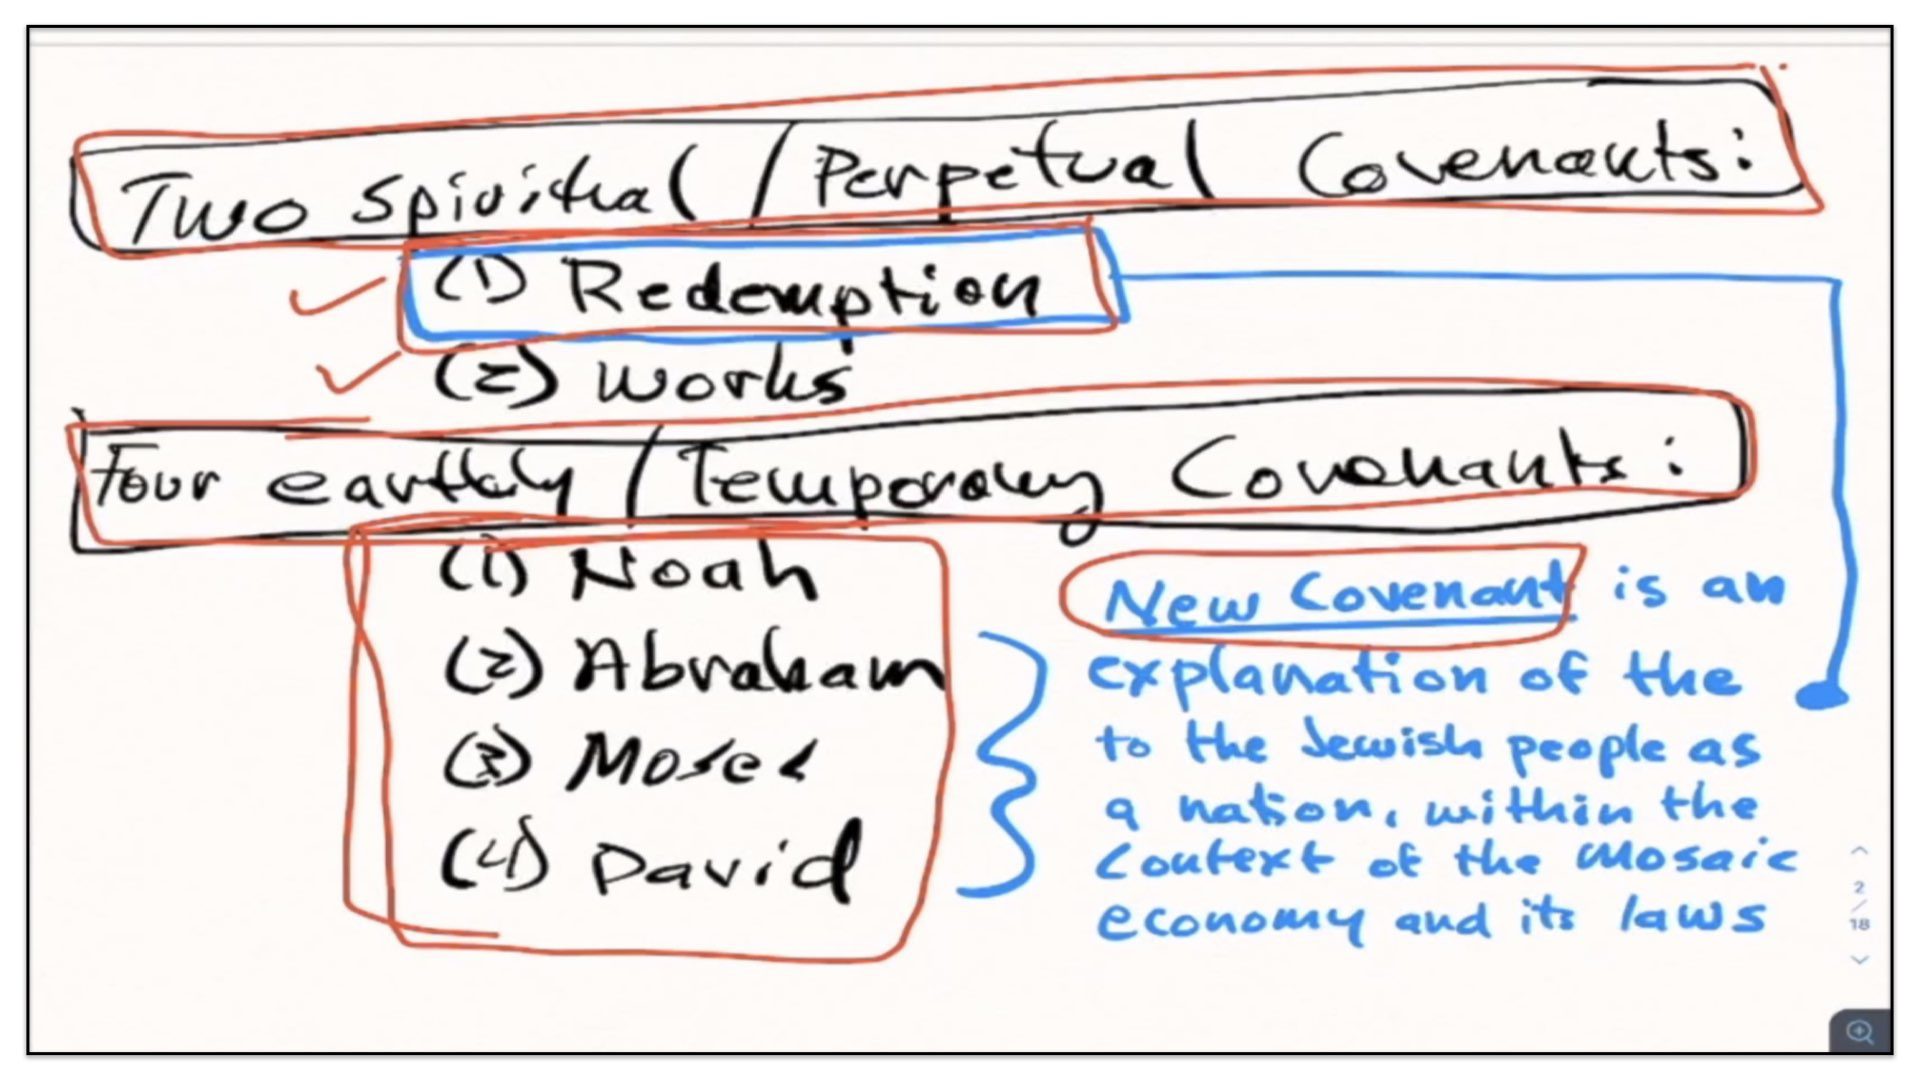 Two Spiritual / Perpetual Covenants:
(1) Redemption
(2) Works
Four earthly / Temporary Covenants:
(1) Noah
(2) Abraham
(3) Moses
(4) David
New Covenant is an
explanation of the
to the Jewish people as
a nation, within the
Context of the Mosaic
economy and its laws
2
/
18